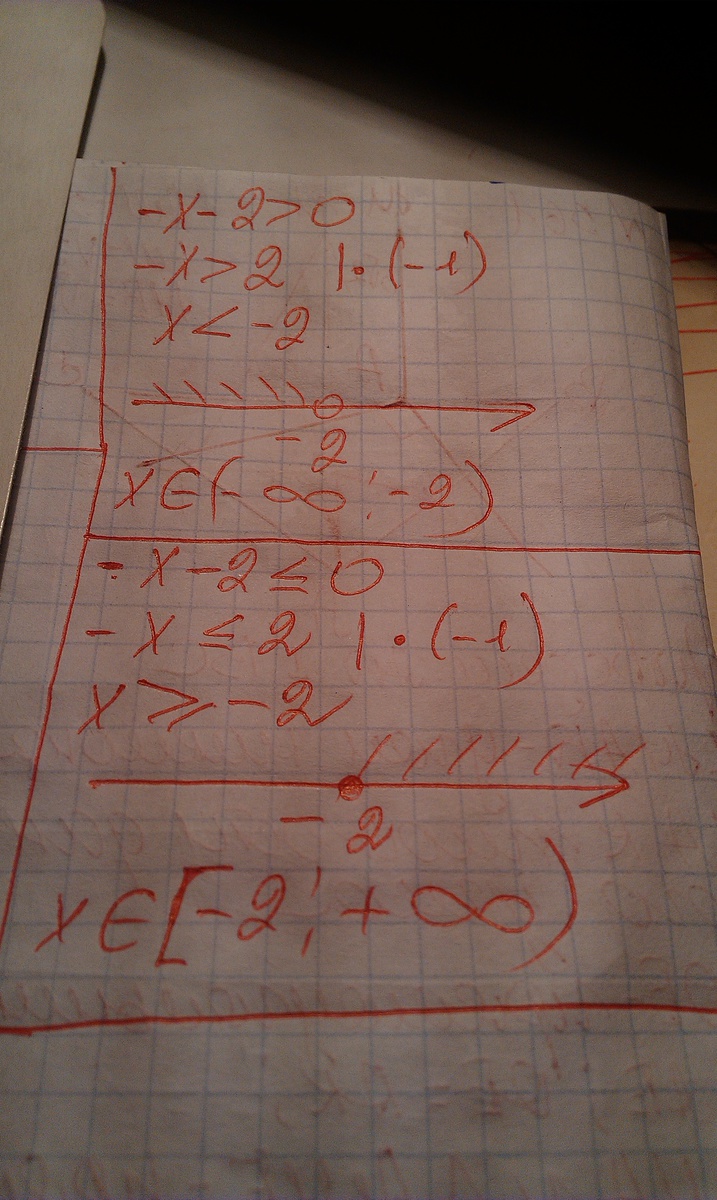 -x-2>0
-x>2 |·(-1)
x<-2
-2
x∈(-∞;-2)
-x-2≤0
-x≤2 |·(-1)
x≥-2
-2
x∈[-2;+∞)